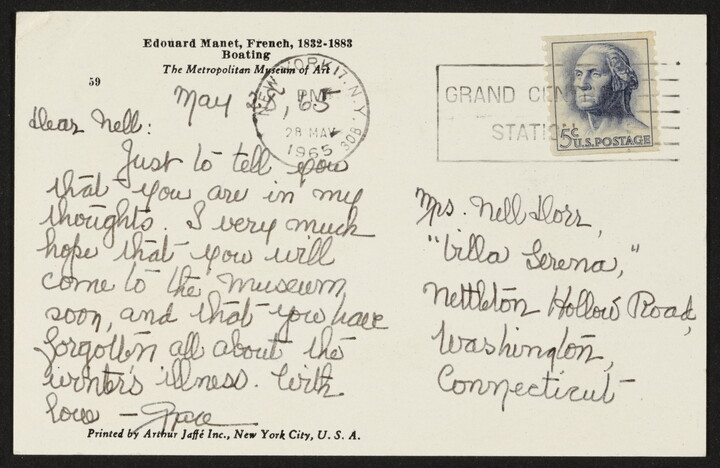 Edouard Manet, French, 1832-1883
Boating
The Metropolitan Museum of Art
59
May 28, '65
NEW YORK 17, N.Y.
PM
28 MAY
1965
308
GRAND CEN
STATI
5c U.S. POSTAGE
Dear Nell:
Just to tell you
that you are in my
thoughts. I very much
hope that you will
come to the Museum
soon, and that you have
forgotten all about the
winter's illness. With
love — Grace
Mrs. Nell Dorr,
"Villa Serena,"
Nettleton Hollow Road,
Washington,
Connecticut
Printed by Arthur Jaffé Inc., New York City, U. S. A.